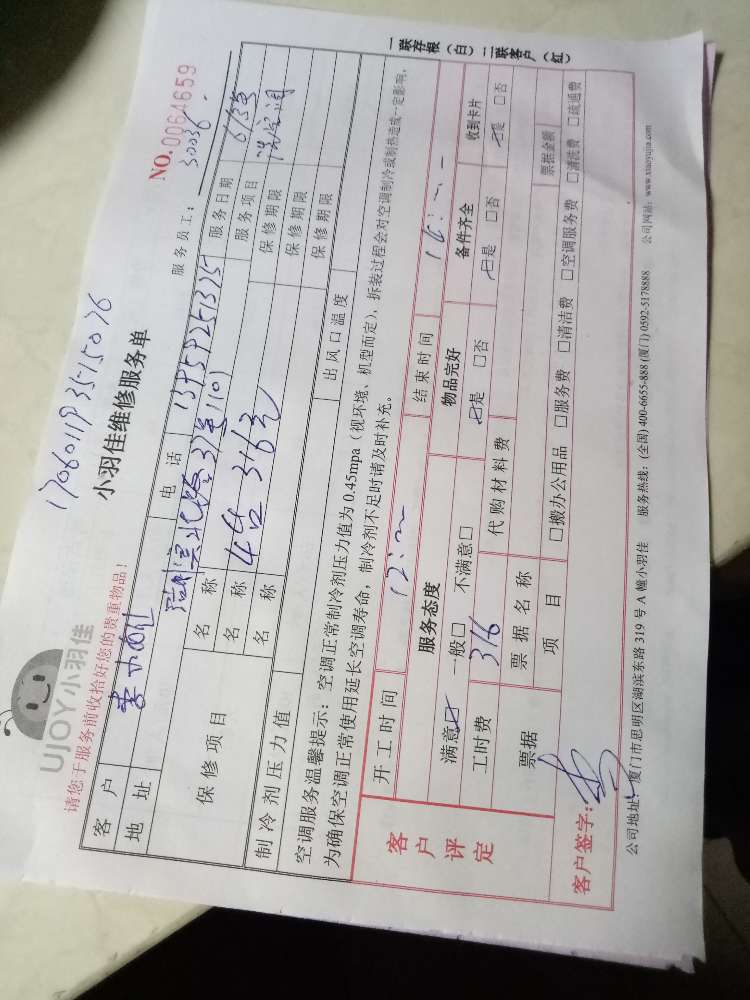 UJOY小羽佳
请您于服务前收拾好您的贵重物品！
小羽佳维修服务单
NO.0064659
服务员工： 30036
客户 电话 服务日期
地址 服务项目
保修项目 名称 保修期限
名称 4台 316元 保修期限
名称 保修期限
制冷剂压力值 出风口温度
空调服务温馨提示：空调正常制冷剂压力值为0.45mpa（视环境、机型而定），拆装过程会对空调制冷或制热造成一定影响，
为确保空调正常使用延长空调寿命，制冷剂不足时请及时补充。
客户评定
开工时间 12: 结束时间 16:
服务态度 物品完好 备件齐全 收到卡片
满意☑ 一般□ 不满意□ ☑是 □否 ☑是 □否 ☑是 □否
工时费 316 代购材料费
票据 票据名称 票据金额
项目 □搬办公用品 □服务费 □清洁费 □空调服务费 □清洗费 □疏通费
客户签字：
公司地址：厦门市思明区湖滨东路319号A幢小羽佳 服务热线：(全国) 400-6655-888 (厦门) 0592-5178888 公司网站：www.xiaoyujia.com
一联存根（白）二联客户（红）